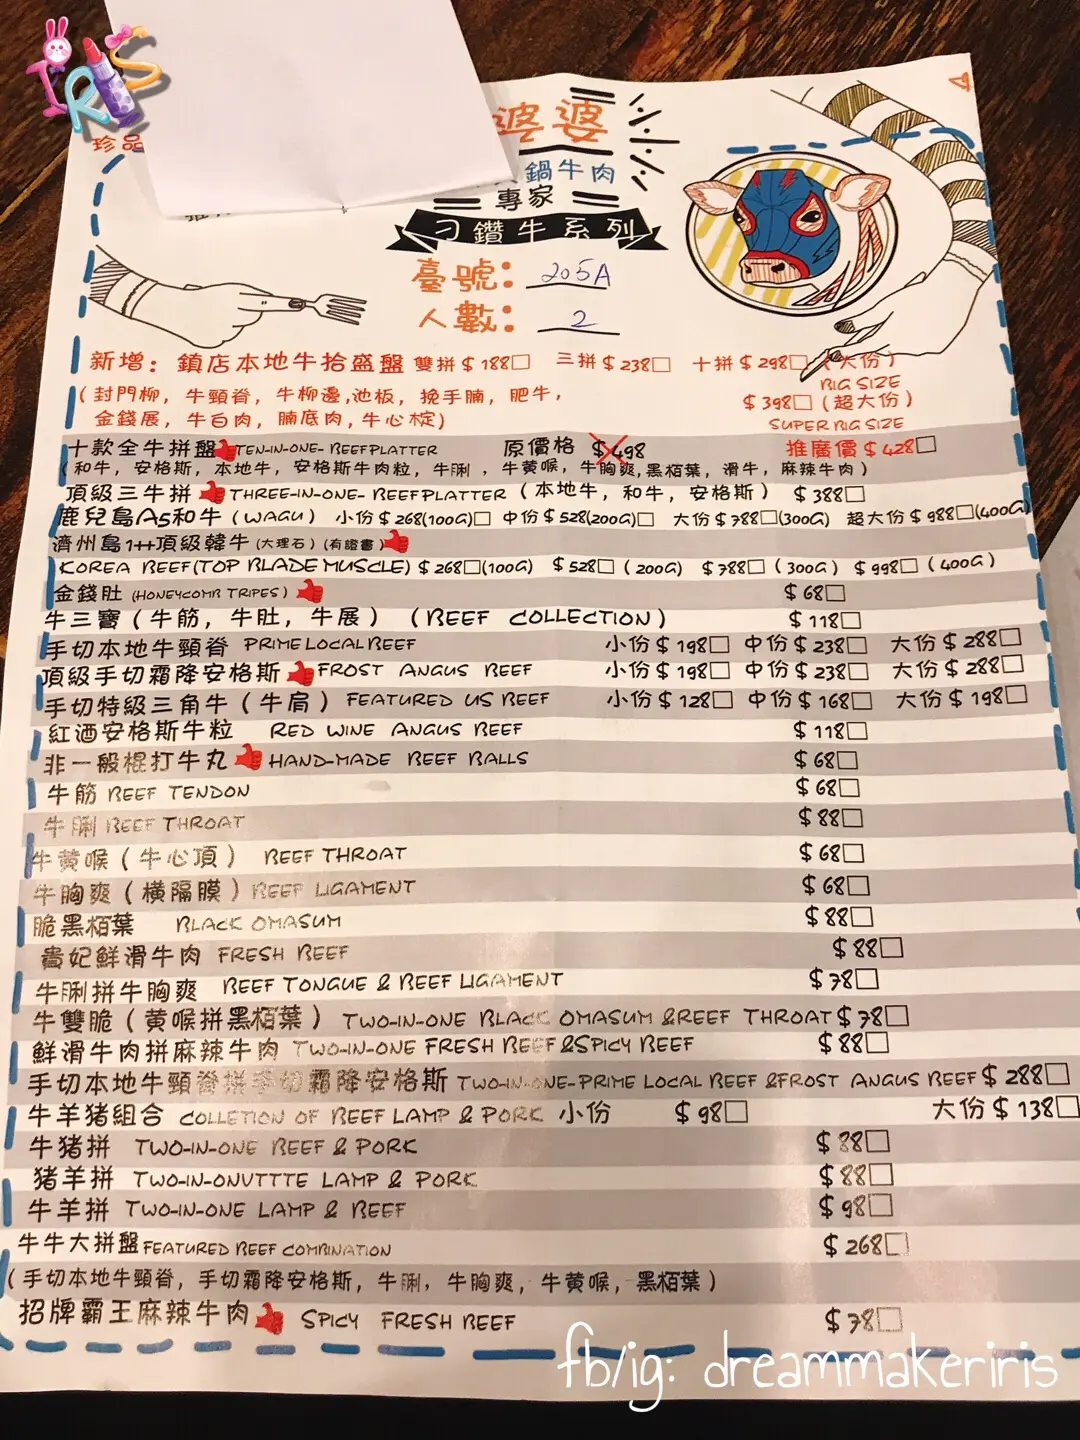 IRIS
珍品
婆婆
鍋牛肉
專家
刁鑽牛系列
臺號: 205A
人數: 2
新增: 鎮店本地牛拾盛盤 雙拼$188□ 三拼$238□ 十拼$298□ (大份)
BIG SIZE
(封門柳, 牛頸脊, 牛柳邊,池板, 挽手腩, 肥牛, $398□(超大份)
金錢展, 牛白肉, 腩底肉,牛心椗) SUPER BIG SIZE
十款全牛拼盤 TEN-IN-ONE- BEEFPLATTER 原價格 $498 推廣價 $428□
(和牛, 安格斯, 本地牛, 安格斯牛肉粒, 牛脷, 牛黃喉, 牛胸爽,黑栢葉, 滑牛, 麻辣牛肉)
頂級三牛拼 THREE-IN-ONE- BEEFPLATTER (本地牛, 和牛, 安格斯) $388□
鹿兒島A5和牛 (WAGU) 小份$268(100G)□ 中份$528(200G)□ 大份$788□(300G) 超大份$988□(400G)
濟州島1++頂級韓牛(大理石)(有證書)
KOREA BEEF(TOP BLADE MUSCLE) $268□(100G) $528□ (200G) $788□ (300G) $998□ (400G)
金錢肚 (HONEYCOMB TRIPES) $68□
牛三寶 (牛筋, 牛肚, 牛展) (BEEF COLLECTION) $118□
手切本地牛頸脊 PRIME LOCAL BEEF 小份$198□ 中份$238□ 大份$288□
頂級手切霜降安格斯 FROST ANGUS BEEF 小份$198□ 中份$238□ 大份$288□
手切特級三角牛 (牛肩) FEATURED US BEEF 小份$128□ 中份$168□ 大份$198□
紅酒安格斯牛粒 RED WINE ANGUS BEEF $118□
非一般棍打牛丸 HAND-MADE BEEF BALLS $68□
牛筋 BEEF TENDON $68□
牛脷 BEEF THROAT $88□
牛黃喉 (牛心頂) BEEF THROAT $68□
牛胸爽 (橫隔膜) BEEF LIGAMENT $68□
脆黑栢葉 BLACK OMASUM $88□
貴妃鮮滑牛肉 FRESH BEEF $88□
牛脷拼牛胸爽 BEEF TONGUE & BEEF LIGAMENT $78□
牛雙脆 (黃喉拼黑栢葉) TWO-IN-ONE BLACK OMASUM &REEF THROAT $78□
鮮滑牛肉拼麻辣牛肉 TWO-IN-ONE FRESH BEEF &SPICY BEEF $88□
手切本地牛頸脊拼手切霜降安格斯 TWO-IN-ONE-PRIME LOCAL BEEF &FROST ANGUS BEEF $288□
牛羊猪組合 COLLETION OF BEEF LAMP & PORK 小份 $98□ 大份$138□
牛猪拼 TWO-IN-ONE BEEF & PORK $88□
猪羊拼 TWO-IN-ONVTTTE LAMP & PORK $88□
牛羊拼 TWO-IN-ONE LAMP & BEEF $98□
牛牛大拼盤 FEATURED BEEF COMBINATION $268□
(手切本地牛頸脊, 手切霜降安格斯, 牛脷, 牛胸爽, 牛黃喉, 黑栢葉)
招牌霸王麻辣牛肉 SPICY FRESH BEEF $78□
fb/ig: dreammakeriris